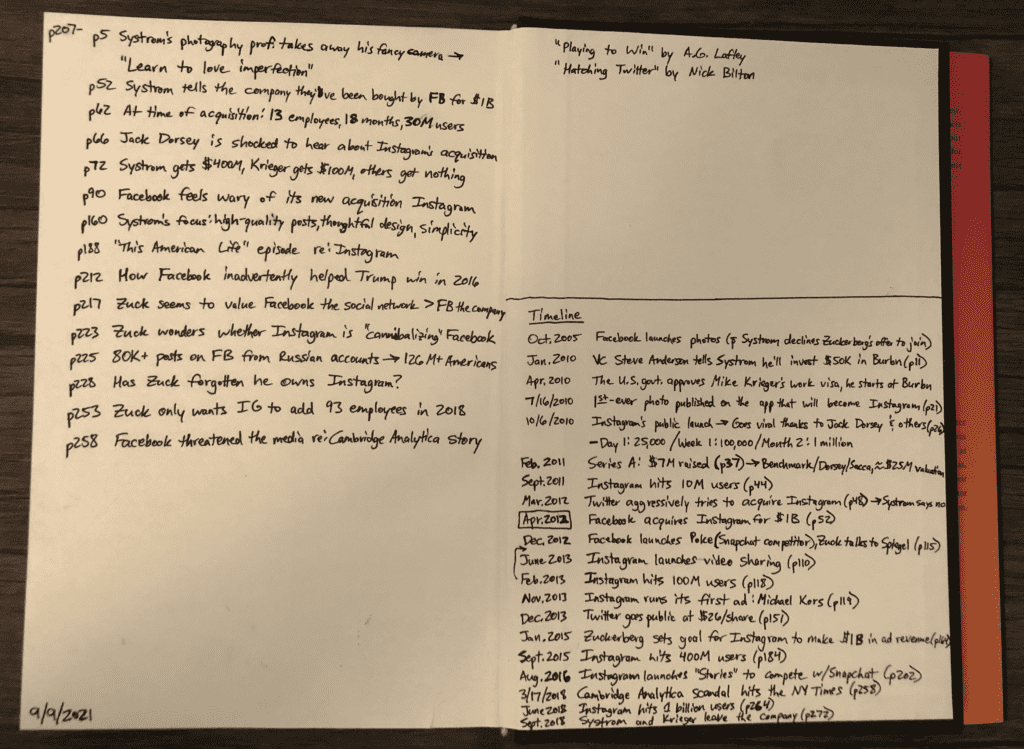 p207-
p5 Systrom's photography prof. takes away his fancy camera →
"Learn to love imperfection"
p52 Systrom tells the company they've been bought by FB for $1B
p62 At time of acquisition: 13 employees, 18 months, 30M users
p66 Jack Dorsey is shocked to hear about Instagram's acquisition
p72 Systrom gets $400M, Krieger gets $100M, others get nothing
p90 Facebook feels wary of its new acquisition Instagram
p160 Systrom's focus: high-quality posts, thoughtful design, simplicity
p188 "This American Life" episode re: Instagram
p212 How Facebook inadvertently helped Trump win in 2016
p217 Zuck seems to value Facebook the social network > FB the company
p223 Zuck wonders whether Instagram is "cannibalizing" Facebook
p225 80K+ posts on FB from Russian accounts → 126M+ Americans
p228 Has Zuck forgotten he owns Instagram?
p253 Zuck only wants IG to add 93 employees in 2018
p258 Facebook threatened the media re: Cambridge Analytica story
9/9/2021
"Playing to Win" by A.G. Lafley
"Hatching Twitter" by Nick Bilton
Timeline
Oct. 2005 Facebook launches photos (Systrom declines Zuckerberg's offer to join)
Jan. 2010 VC Steve Anderson tells Systrom he'll invest $50K in Burbn (p11)
Apr. 2010 The U.S. govt. approves Mike Krieger's work visa, he starts at Burbn
7/16/2010 1st-ever photo published on the app that will become Instagram (p21)
10/6/2010 Instagram's public launch → Goes viral thanks to Jack Dorsey & others
- Day 1: 25,000 / Week 1: 100,000 / Month 2: 1 million
Feb. 2011 Series A: $7M raised (p37) → Benchmark/Dorsey/Sacca, ≈$25M valuation
Sept. 2011 Instagram hits 10M users (p44)
Mar. 2012 Twitter aggressively tries to acquire Instagram (p48) → Systrom says no
Apr. 2012 Facebook acquires Instagram for $1B (p52)
Dec. 2012 Facebook launches Poke (Snapchat competitor), Zuck talks to Spiegel (p115)
June 2013 Instagram launches video sharing (p110)
Feb. 2013 Instagram hits 100M users (p118)
Nov. 2013 Instagram runs its first ad: Michael Kors (p119)
Dec. 2013 Twitter goes public at $26/share (p151)
Jan. 2015 Zuckerberg sets goal for Instagram to make $1B in ad revenue
Sept. 2015 Instagram hits 400M users (p184)
Aug. 2016 Instagram launches "Stories" to compete w/Snapchat (p202)
3/17/2018 Cambridge Analytica Scandal hits the NY Times (p258)
June 2018 Instagram hits 1 billion users (p264)
Sept. 2018 Systrom and Krieger leave the company (p272)